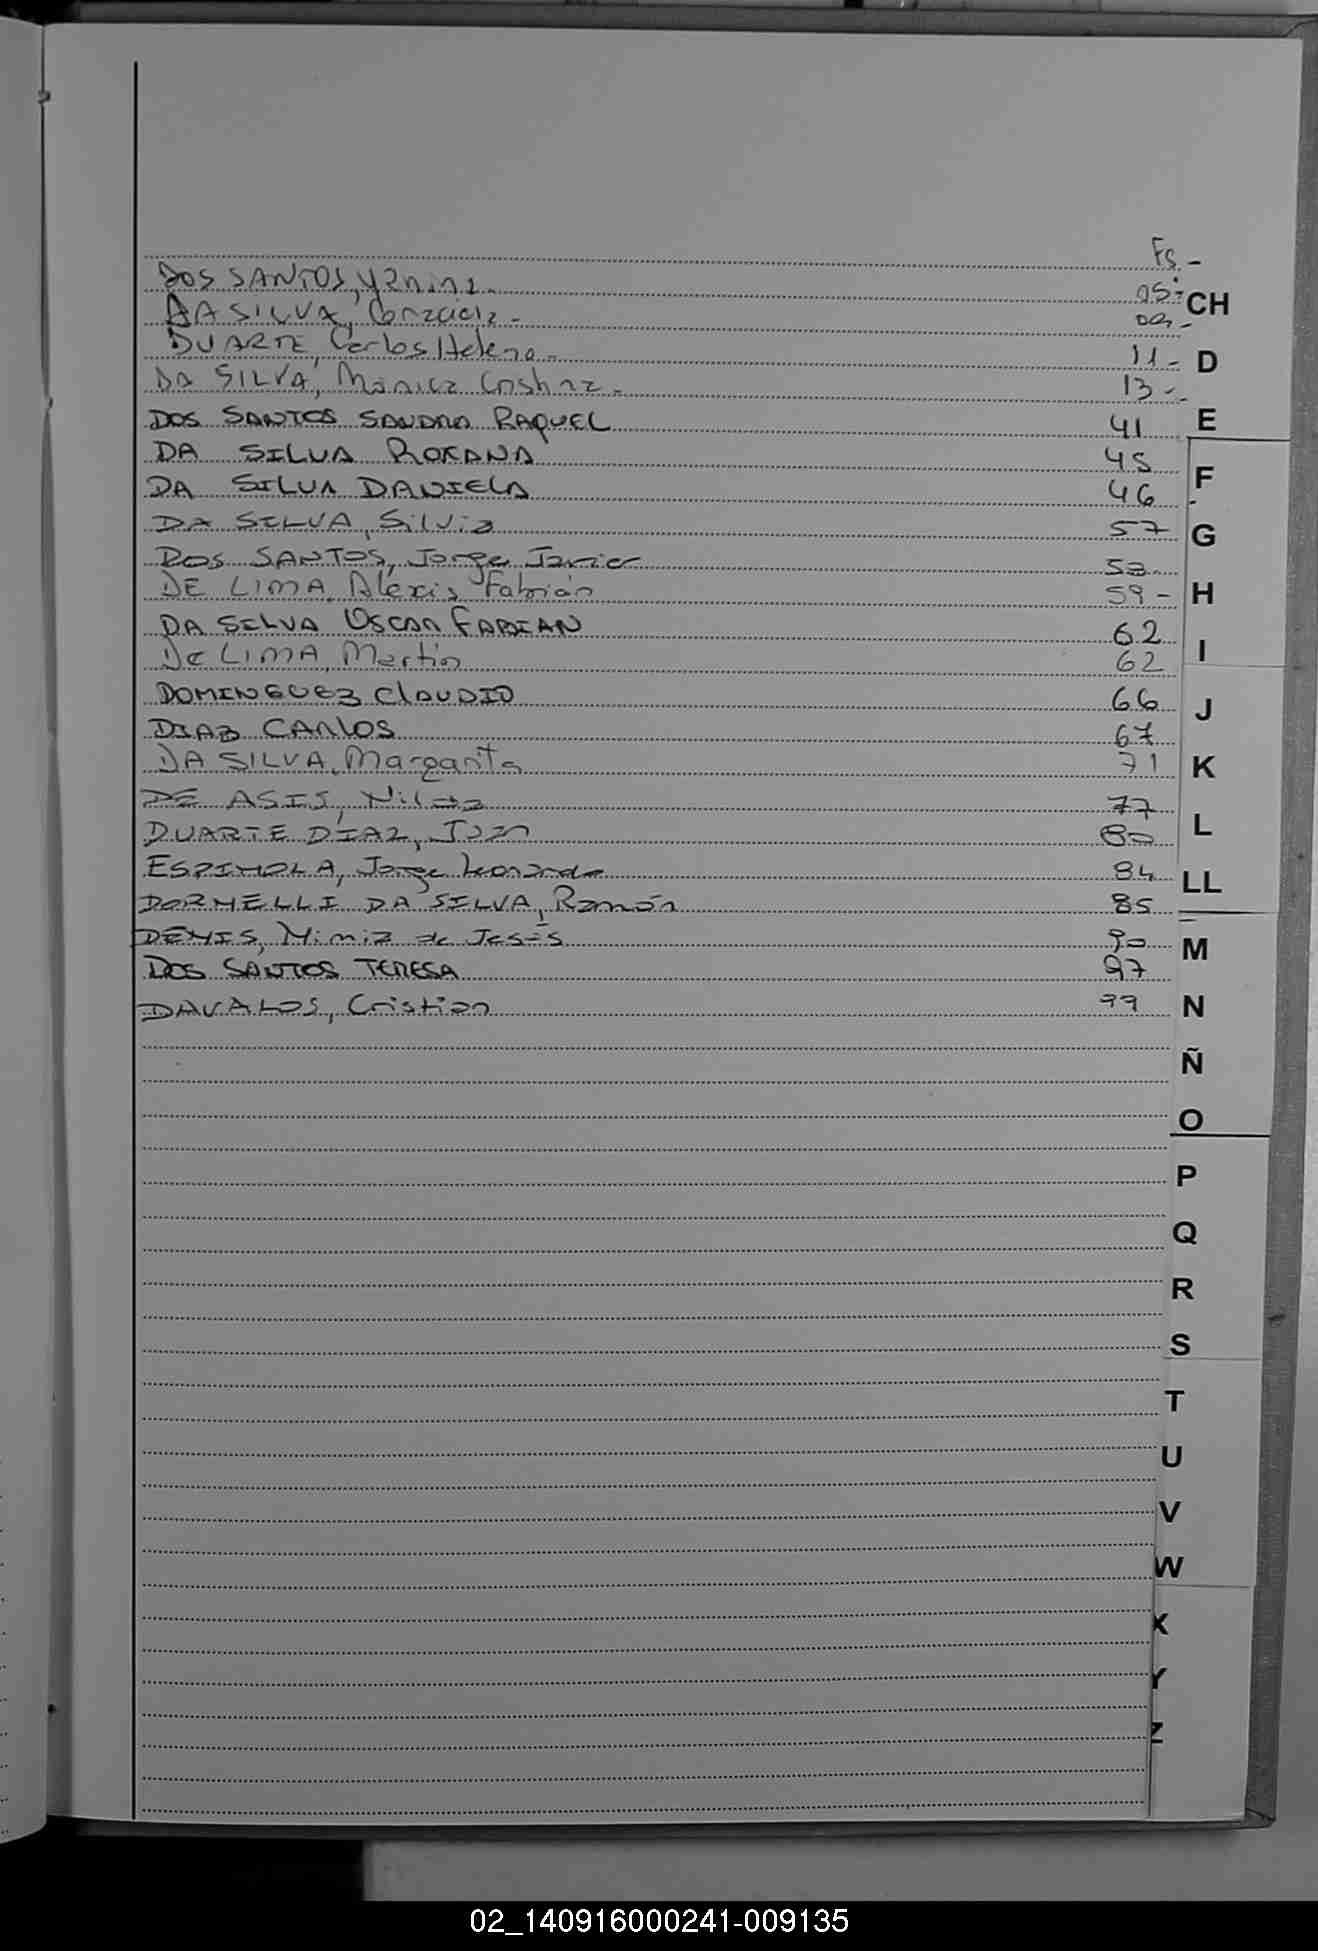 Fs.-
DOS SANTOS, Yanina.- 05.-
DA SILVA, Graciela.- 09.-
DUARTE, Carlos Heleno.- 11.-
DA SILVA, Mónica Cristina.- 13.-
DOS SANTOS SANDRA RAQUEL 41
DA SILVA ROXANA 45
DA SILVA DANIELA 46
DA SILVA, Silvia 57
DOS SANTOS, Jorge Javier 58
DE LIMA, Alexis Fabián 59-
DA SILVA OSCAR FABIAN 62
De LIMA, Martín 62
DOMINGUEZ CLAUDIO 66
DIAZ CARLOS 67
DA SILVA, Margarita 71
DE ASIS, Nilda 77
DUARTE DÍAZ, Juan 80
ESPINOLA, Jorge Leonardo 84
DORNELLI DA SILVA, Ramón 85
DENIS, Mirnia de Jesús 90
DOS SANTOS TERESA 97
DAVALOS, Cristian 99
CH
D
E
F
G
H
I
J
K
L
LL
M
N
Ñ
O
P
Q
R
S
T
U
V
W
X
Y
Z
02_140916000241-009135